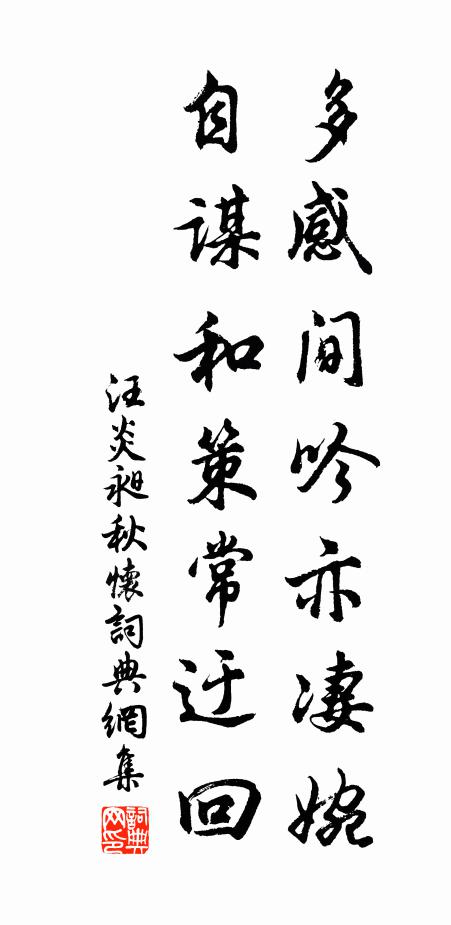 多感间吟亦凄婉
自谋和策常迂回
汪炎昶秋懷詞典網集
詞典网印